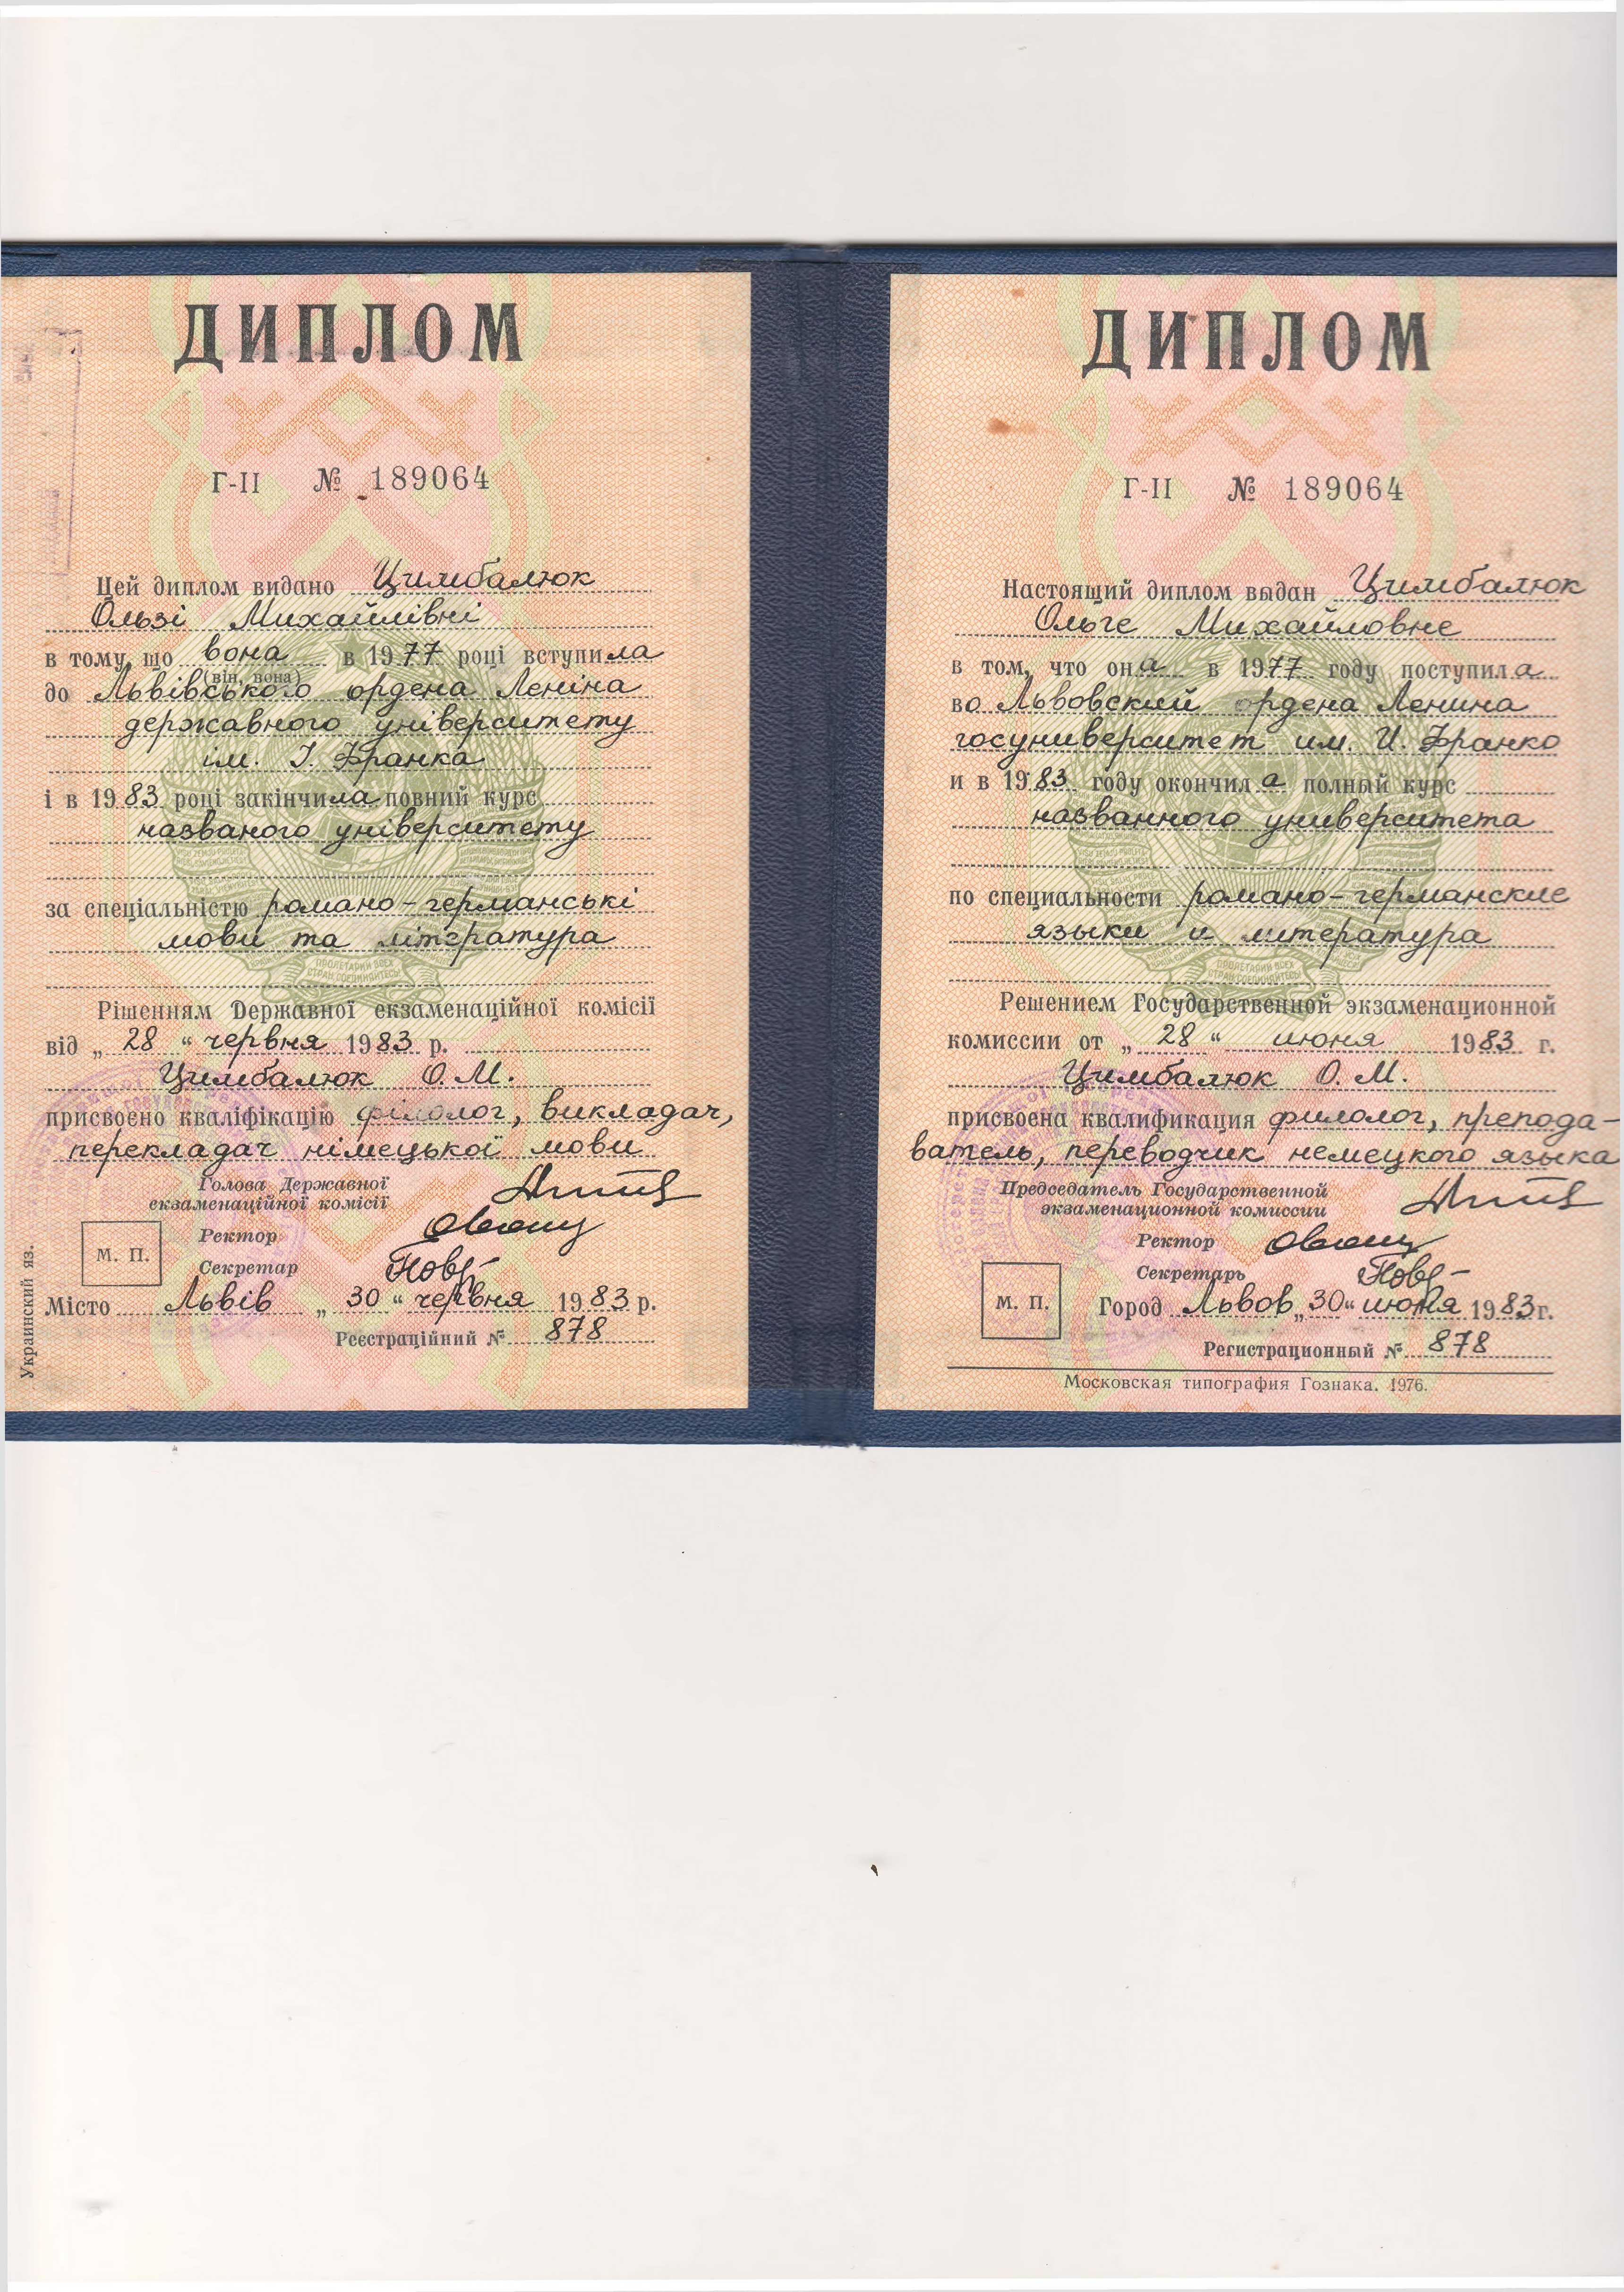 ДИПЛОМ
Г-II № 189064
Цей диплом видано Цимбалюк
Ользі Михайлівні
в тому, що вона в 1977 році вступила
(він, вона)
до Львівського ордена Леніна
державного університету
ім. І. Франка
і в 1983 році закінчила повний курс
названого університету
за спеціальністю романо-германські
мови та література
Рішенням Державної екзаменаційної комісії
від „28“ червня 1983 р.
Цимбалюк О.М.
присвоєно кваліфікацію філолог, викладач,
перекладач німецької мови
Голова Державної
екзаменаційної комісії
Ректор
Секретар
М. П.
Місто Львів „30“ червня 1983 р.
Реєстраційний № 878
Украинский яз.
ДИПЛОМ
Г-II № 189064
Настоящий диплом выдан Цимбалюк
Ольге Михайловне
в том, что она в 1977 году поступила
во Львовский ордена Ленина
госуниверситет им. И. Франко
и в 1983 году окончила полный курс
названного университета
по специальности романо-германские
языки и литература
Решением Государственной экзаменационной
комиссии от „28“ июня 1983 г.
Цимбалюк О.М.
присвоена квалификация филолог, препода-
ватель, переводчик немецкого языка
Председатель Государственной
экзаменационной комиссии
Ректор
Секретарь
М. П.
Город Львов „30“ июня 1983 г.
Регистрационный № 878
Московская типография Гознака. 1976.
ПРОЛЕТАРИИ ВСЕХ
СТРАН СОЕДИНЯЙТЕСЬ!